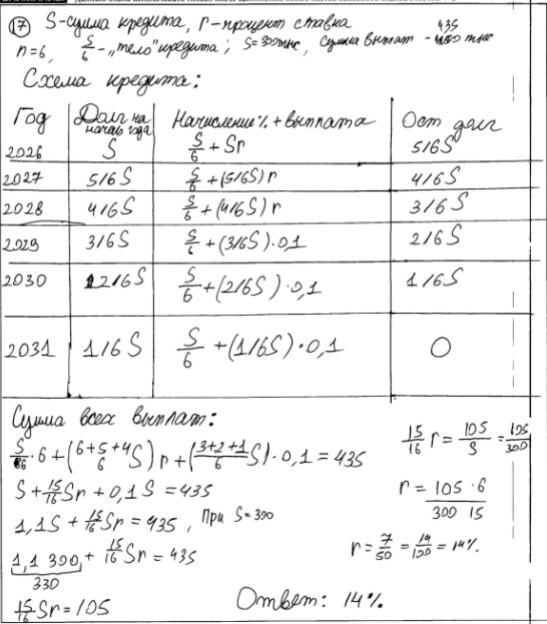 17 S-сумма кредита, r-процент ставка
n=6, S/6 - "тело" кредита; S=300 тыс, Сумма выплат - 435 тыс
Схема кредита:
Год Долг на начало года Начисление % + выплата Ост долг
2026 S S/6 + Sr 5/6S
2027 5/6S S/6 + (5/6S)r 4/6S
2028 4/6S S/6 + (4/6S)r 3/6S
2029 3/6S S/6 + (3/6S)·0,1 2/6S
2030 2/6S S/6 + (2/6S)·0,1 1/6S
2031 1/6S S/6 + (1/6S)·0,1 0
Сумма всех выплат:
S/6·6 + (6+5+4/6 S)r + (3+2+1/6 S)·0,1 = 435
S + 15/16 Sr + 0,1S = 435
1,1S + 15/16 Sr = 435, При S=300
1,1 300 + 15/16 Sr = 435
330
15/16 Sr = 105
15/16 r = 105/S = 105/300
r = 105·6/300 15
r = 7/50 = 14/100 = 14%.
Ответ: 14%